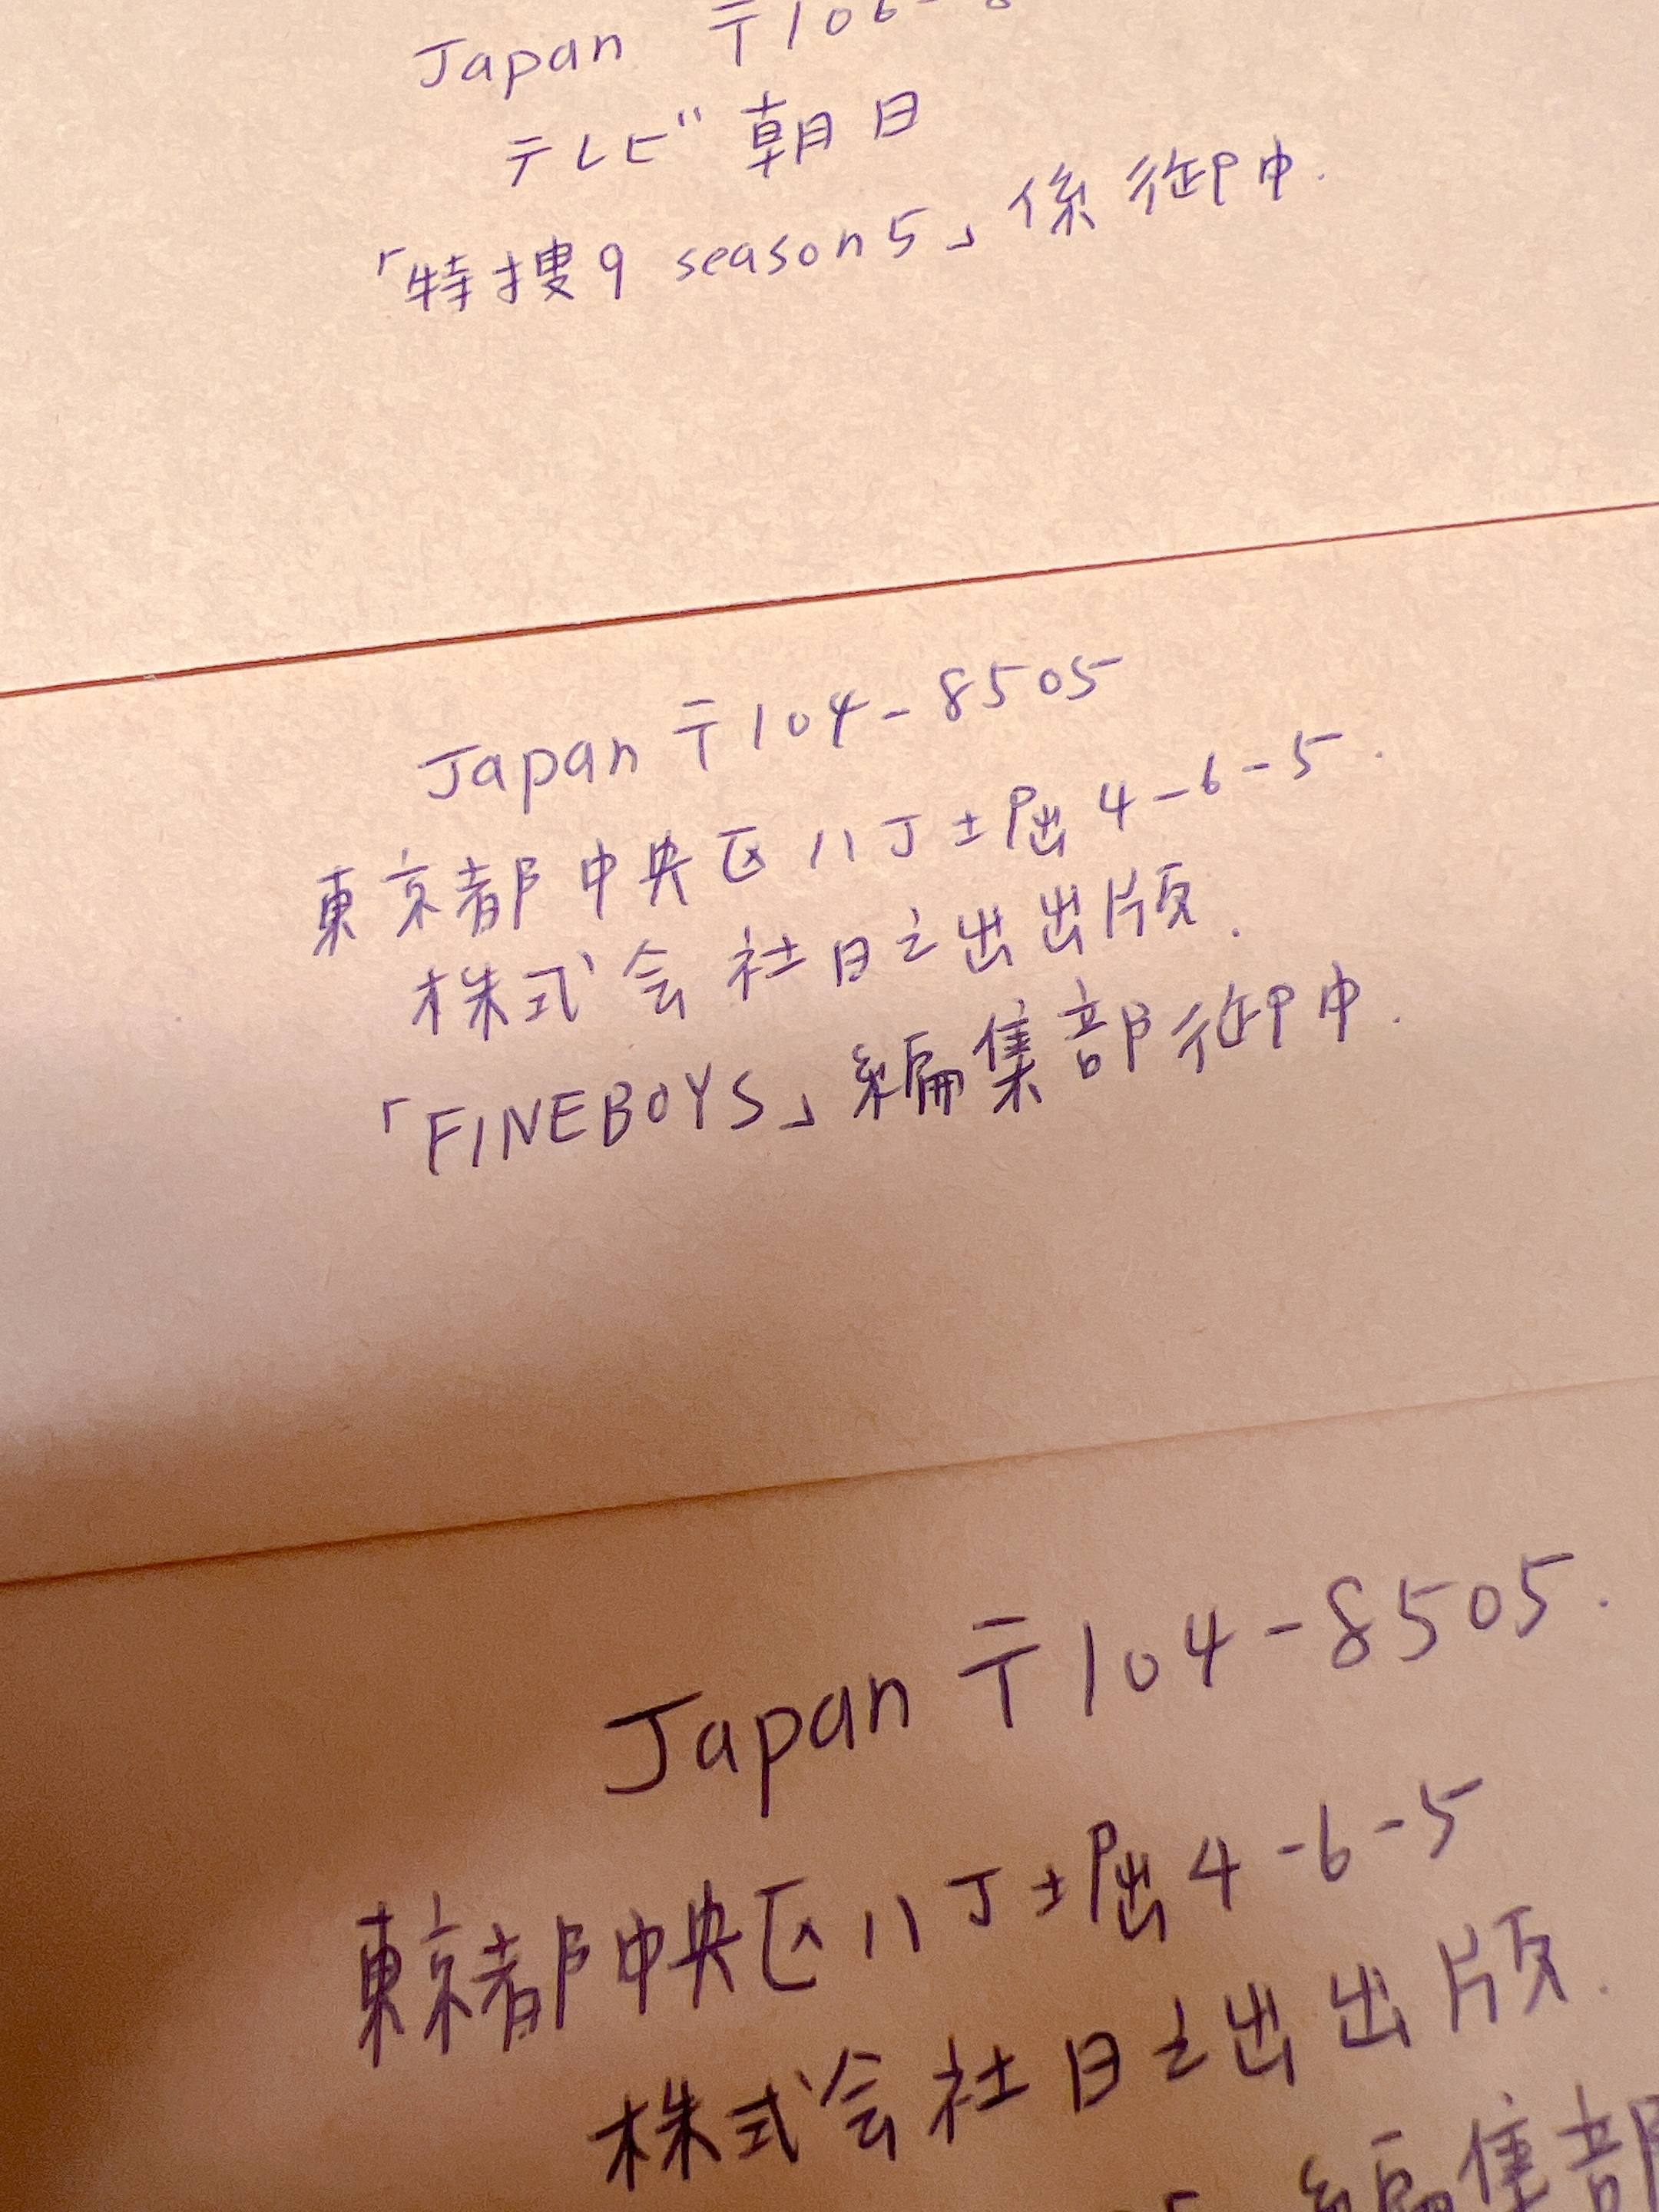 Japan 〒106-8
テレビ朝日
「特捜9 season5」係 御中.
Japan 〒104-8505
東京都中央区八丁堀4-6-5.
株式会社日之出出版.
「FINEBOYS」編集部御中.
Japan 〒104-8505.
東京都中央区八丁堀4-6-5
株式会社日之出出版.
編集部